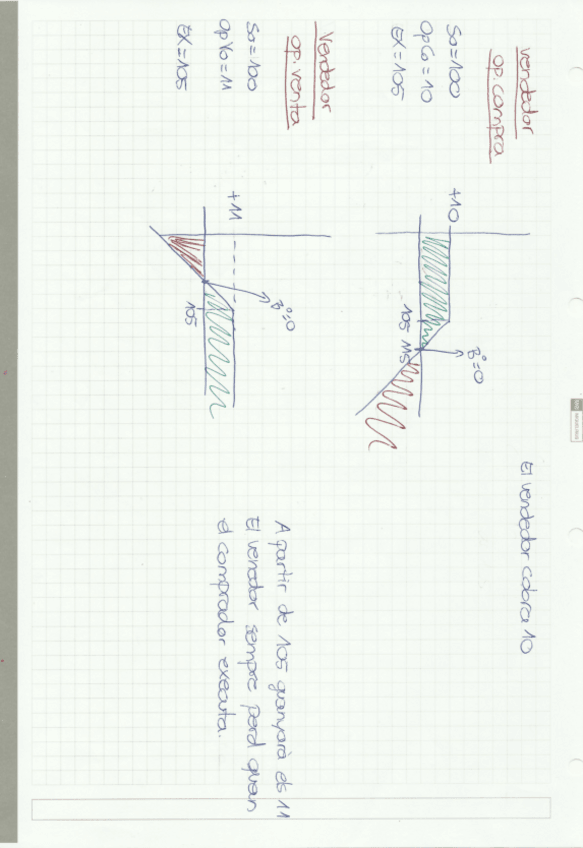 vendedor
op. compra
So=100
OpCo=10
EX=105
+10
105 115
Bº=0
El vendedor cobra 10
Vendedor
op. venta
So=100
OpVo=11
EX=105
+11
105
Bº=0
A partir de 105 guanyarà els 11
El venedor sempre perd quan
el comprador executa.